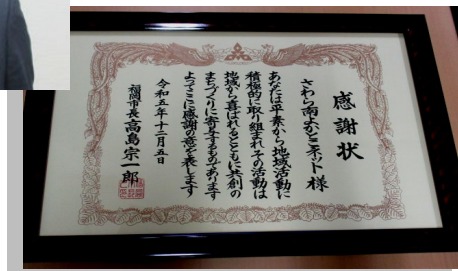 感謝状
さわら南よかとこネット様
あなたは平素から地域活動に
積極的に取り組まれその活動は
地域から喜ばれるとともに共創の
まちづくりに寄与するものであります
よってここに感謝の意を表します
令和五年十二月五日
福岡市長 高島宗一郎